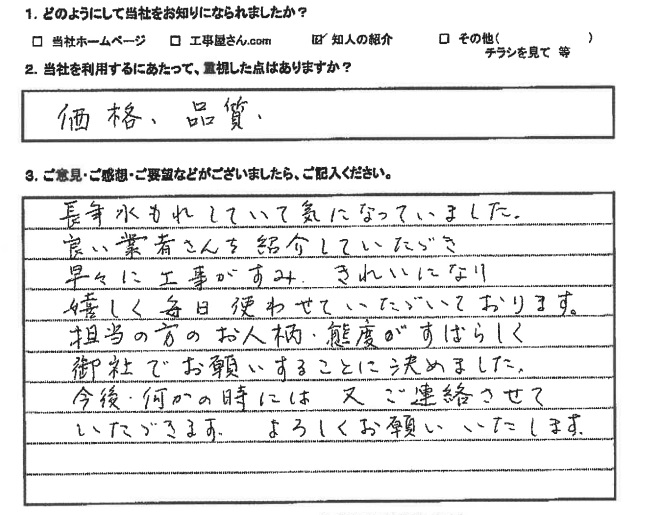 1. どのようにして当社をお知りになられましたか？
□ 当社ホームページ □ 工事屋さん.com ☑ 知人の紹介 □ その他( )
チラシを見て 等
2. 当社を利用するにあたって、重視した点はありますか？
価格、品質、
3. ご意見・ご感想・ご要望などがございましたら、ご記入ください。
長年水もれしていて気になっていました。
良い業者さんを紹介していただき
早々に工事がすみ、きれいになり
嬉しく毎日使わせていただいております。
担当の方のお人柄・態度がすばらしく
御社でお願いすることに決めました。
今後・何かの時には又ご連絡させて
いただきます。 よろしくお願いいたします。